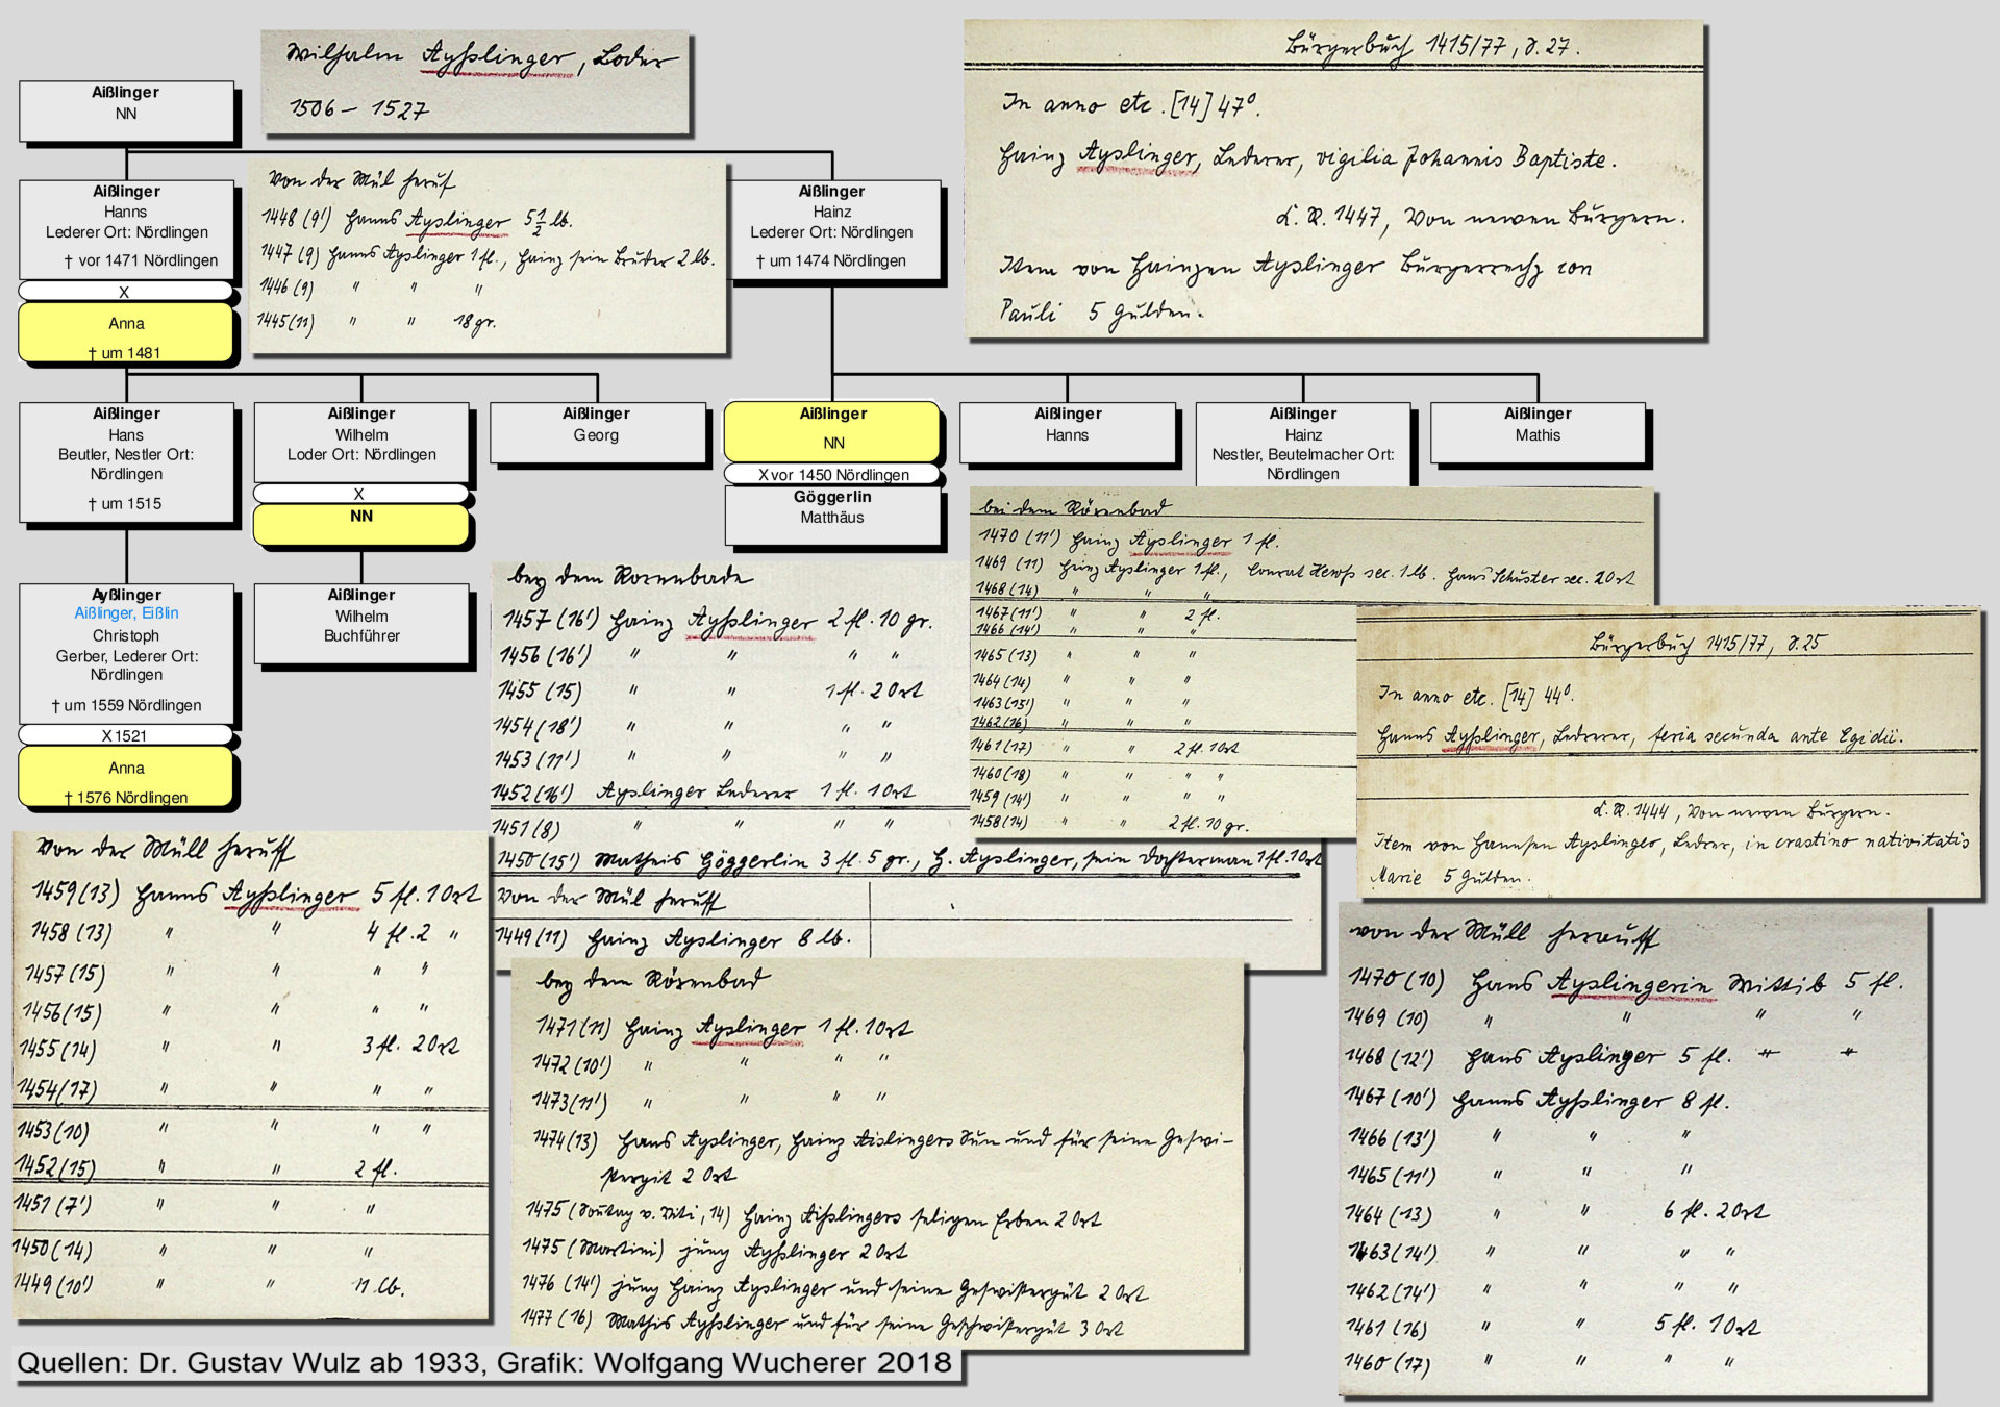 Wilhalm Ayßlinger, Loder
1506 – 1527
Bürgerbuch 1415/77, S. 27.
In anno etc. [14] 47⁰.
Hainz Ayslinger, Lederer, vigilia Johannis Baptiste.
K. R. 1447, Von newen Bürgern.
Item von Hainzen Ayslinger Bürgerrecht con
Pauli 5 Gulden.
Aißlinger
NN
Aißlinger
Hanns
Lederer Ort: Nördlingen
† vor 1471 Nördlingen
X
Anna
† um 1481
Von der Mül heruf
1448 (9') Hanns Ayslinger 5 1/2 lb.
1447 (9) Hanns Ayslinger 1 fl., Hainz sein Bruder 2 lb.
1446 (9) " " "
1445 (11) " " 18 gr.
Aißlinger
Hainz
Lederer Ort: Nördlingen
† um 1474 Nördlingen
Aißlinger
Hans
Beutler, Nestler Ort:
Nördlingen
† um 1515
Aißlinger
Wilhelm
Loder Ort: Nördlingen
X
NN
Aißlinger
Georg
Aißlinger
NN
X vor 1450 Nördlingen
Göggerlin
Matthäus
Aißlinger
Hanns
Aißlinger
Hainz
Nestler, Beutelmacher Ort:
Nördlingen
Aißlinger
Mathis
Ayßlinger
Aißlinger, Eißlin
Christoph
Gerber, Lederer Ort:
Nördlingen
† um 1559 Nördlingen
X 1521
Anna
† 1576 Nördlingen
Aißlinger
Wilhelm
Buchführer
bei dem Rörenbad
1470 (11') Hainz Ayslinger 1 fl.
1469 (11) Hainz Ayslinger 1 fl., Conrat sec. 1 lb. Hans Schuster sec. 2 Ort
1468 (14) " " "
1467 (11') " " 2 fl.
1466 (14') " " "
1465 (13) " " "
1464 (14) " " "
1463 (15') " " "
1462 (16) " " "
1461 (17) " " 2 fl. 1 Ort
1460 (18) " " " "
1459 (14') " " " "
1458 (14) " " 2 fl. 10 gr.
bey dem Rorenbade
1457 (16') Hainz Ayßlinger 2 fl. 10 gr.
1456 (16') " " " "
1455 (15) " " 1 fl. 2 Ort
1454 (18') " " " "
1453 (11') " " " "
1452 (16') Ayslinger Lederer 1 fl. 1 Ort
1451 (8) " " " "
1450 (15') Matheis Göggerlin 3 fl. 5 gr., H. Ayslinger, sein Dochterman 1 fl. 1 Ort
Von der Mül heruff
1449 (11) Hainz Ayslinger 8 lb.
Bürgerbuch 1415/77, S. 25
In anno etc. [14] 44⁰.
Hanns Ayßlinger, Lederer, feria secunda ante Egidii.
K. R. 1444, Von newen Bürgern.
Item von Hannsen Ayslinger, Ledrer, in crastino nativitatis
Marie 5 Gulden.
Von der Müll heruff
1459 (13) Hanns Ayßlinger 5 fl. 1 Ort
1458 (13) " " 4 fl. 2 "
1457 (15) " " " "
1456 (15) " " " "
1455 (14) " " 3 fl. 2 Ort
1454 (17) " " " "
1453 (10) " " " "
1452 (15) " " 2 fl.
1451 (7') " " "
1450 (14) " " "
1449 (10') " " 11 lb.
bey dem Rörenbad
1471 (11) Hainz Ayslinger 1 fl. 1 Ort
1472 (10') " " " "
1473 (11') " " " "
1474 (13) Hans Ayslinger, Hainz Aislingers Sun und für seine Geswi-
stergit 2 Ort
1475 (Sontag v. Viti, 14) Hainz Aißlingers seligen Erben 2 Ort
1475 (Martini) jung Ayßlinger 2 Ort
1476 (14') jung Hainz Ayslinger und seine Geswistergüt 2 Ort
1477 (16) Mathis Ayßlinger und für seine Geschwistergüt 3 Ort
von der Müll herauff
1470 (10) Hans Ayslingerin Wittib 5 fl.
1469 (10) " " " "
1468 (12') Hans Ayslinger 5 fl.
1467 (10') Hanns Ayßlinger 8 fl.
1466 (13') " " "
1465 (11') " " "
1464 (13) " " 6 fl. 2 Ort
1463 (14') " " " "
1462 (14') " " " "
1461 (16) " " 5 fl. 1 Ort
1460 (17) " " " "
Quellen: Dr. Gustav Wulz ab 1933, Grafik: Wolfgang Wucherer 2018